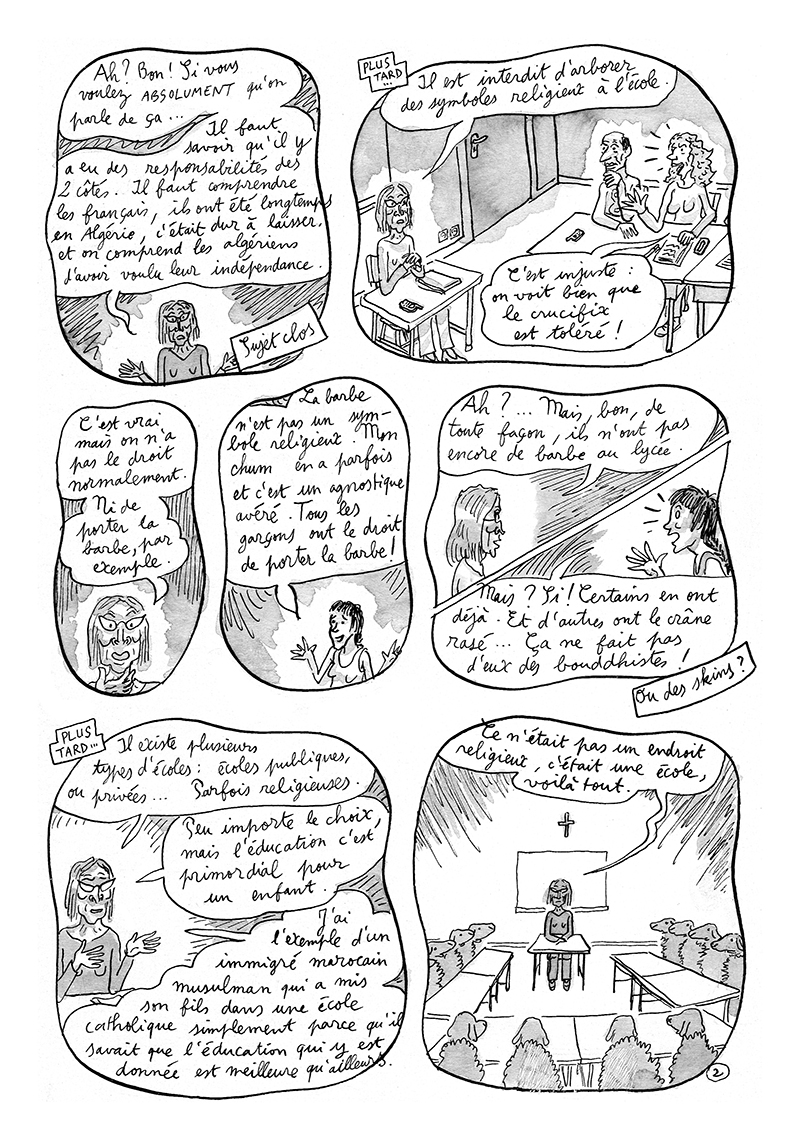 Ah? Bon! Si vous
voulez ABSOLUMENT qu'on
parle de ça...
Il faut
savoir qu'il y
a eu des responsabilités des
2 côtés. Il faut comprendre
les français, ils ont été longtemps
en Algérie, c'était dur à laisser,
et on comprend les algériens
d'avoir voulu leur indépendance.
Sujet clos
PLUS
TARD...
Il est interdit d'arborer
des symboles religieux à l'école.
C'est injuste:
on voit bien que
le crucifix
est toléré!
C'est vrai,
mais on n'a
pas le droit
normalement.
Ni de
porter la
barbe, par
exemple.
La barbe
n'est pas un sym-
bole religieux. Mon
chum en a parfois
et c'est un agnostique
avéré. Tous les
garçons ont le droit
de porter la barbe!
Ah?... Mais, bon, de
toute façon, ils n'ont pas
encore de barbe au lycée.
Mais? Si! Certains en ont
déjà. Et d'autres ont le crâne
rasé... Ça ne fait pas
d'eux des bouddhistes!
Ou des skins?
PLUS
TARD...
Il existe plusieurs
types d'écoles: écoles publiques,
ou privées... Parfois religieuses.
Peu importe le choix,
mais l'éducation c'est
primordial pour
un enfant.
J'ai
l'exemple d'un
immigré marocain
musulman qui a mis
son fils dans une école
catholique simplement parce qu'il
savait que l'éducation qui y est
donnée est meilleure qu'ailleurs.
Ce n'était pas un endroit
religieux, c'était une école,
voilà tout.
2